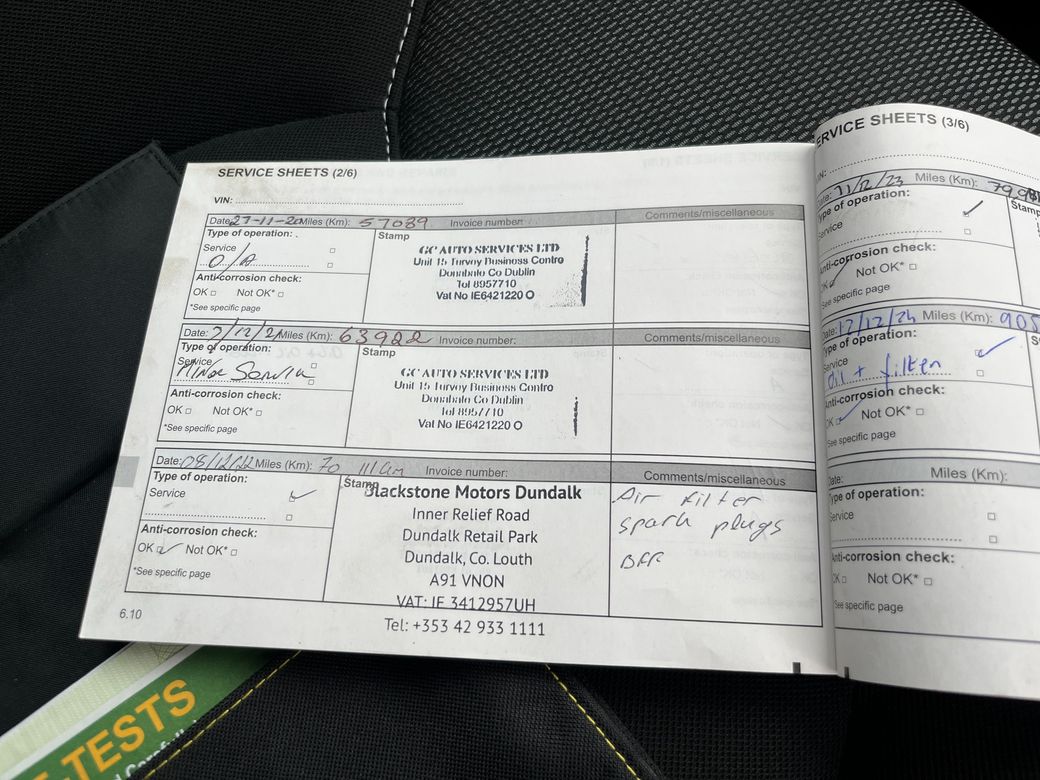 SERVICE SHEETS (2/6)
VIN:
Date: 27-11-20 Miles (Km): 57089 Invoice number:
Comments/miscellaneous
Type of operation:
Stamp
Service
O/A
GC AUTO SERVICES LTD
Unit 15 Turvey Business Centre
Donabate Co Dublin
Tel 8957710
Vat No IE6421220 O
Anti-corrosion check:
OK Not OK*
*See specific page
Date: 7/12/21 Miles (Km): 63922 Invoice number:
Comments/miscellaneous
Type of operation:
Stamp
Service
Minor Service
GC AUTO SERVICES LTD
Unit 15 Turvey Business Centro
Donabate Co Dublin
Tel 8957710
Vat No IE6421220 O
Anti-corrosion check:
OK Not OK*
*See specific page
Date: 08/12/22 Miles (Km): 70 111km Invoice number:
Comments/miscellaneous
Type of operation:
Stamp
Service
Blackstone Motors Dundalk
Inner Relief Road
Dundalk Retail Park
Dundalk, Co. Louth
A91 VN0N
VAT: IE 3412957UH
Tel: +353 42 933 1111
Air filter
spark plugs
Anti-corrosion check:
OK Not OK*
*See specific page
6.10
ERVICE SHEETS (3/6)
11/12/23 Miles (Km):
Type of operation:
Stamp
Service
Anti-corrosion check:
OK Not OK*
*See specific page
Date: 12/12/24 Miles (Km): 905
Type of operation:
Service
Oil + filter
Anti-corrosion check:
OK Not OK*
*See specific page
Date: Miles (Km):
Type of operation:
Service
Anti-corrosion check:
OK Not OK*
*See specific page
TESTS